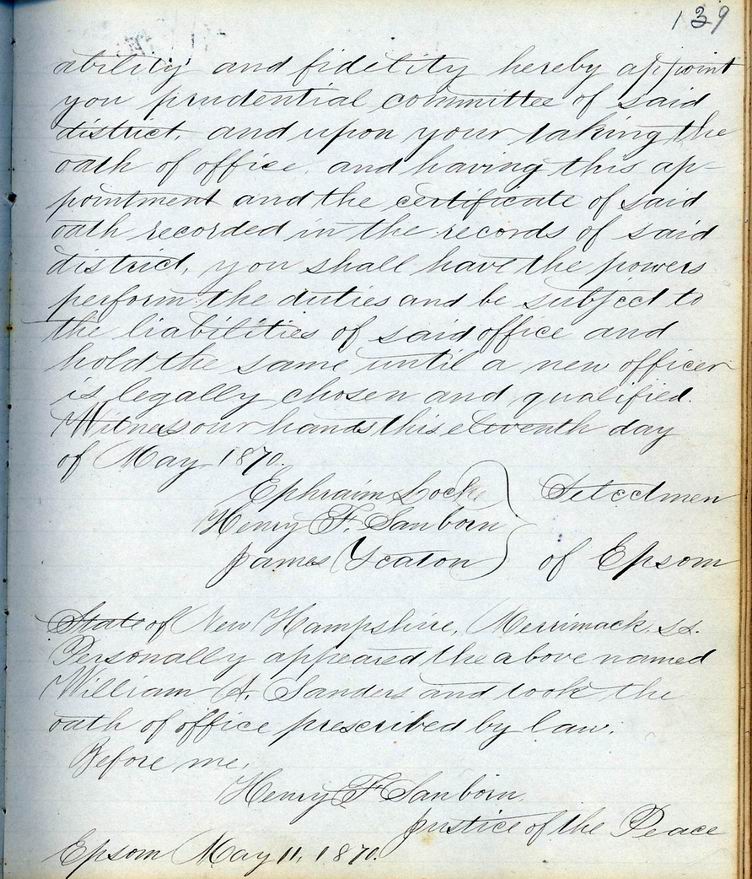 139
ability and fidelity hereby appoint
you prudential committee of said
district, and upon your taking the
oath of office, and having this ap-
pointment and the certificate of said
oath recorded in the records of said
district, you shall have the powers
perform the duties and be subject to
the liabilities of said office and
hold the same until a new officer
is legally chosen and qualified.
Witness our hands this eleventh day
of May 1870.
Ephraim Locke Selectmen
Henry F. Sanborn
James Yeaton of Epsom
State of New Hampshire, Merrimack, ss.
Personally appeared the above named
William A. Sanders and took the
oath of office prescribed by law.
Before me,
Henry F Sanborn.
Justice of the Peace
Epsom May 11, 1870.